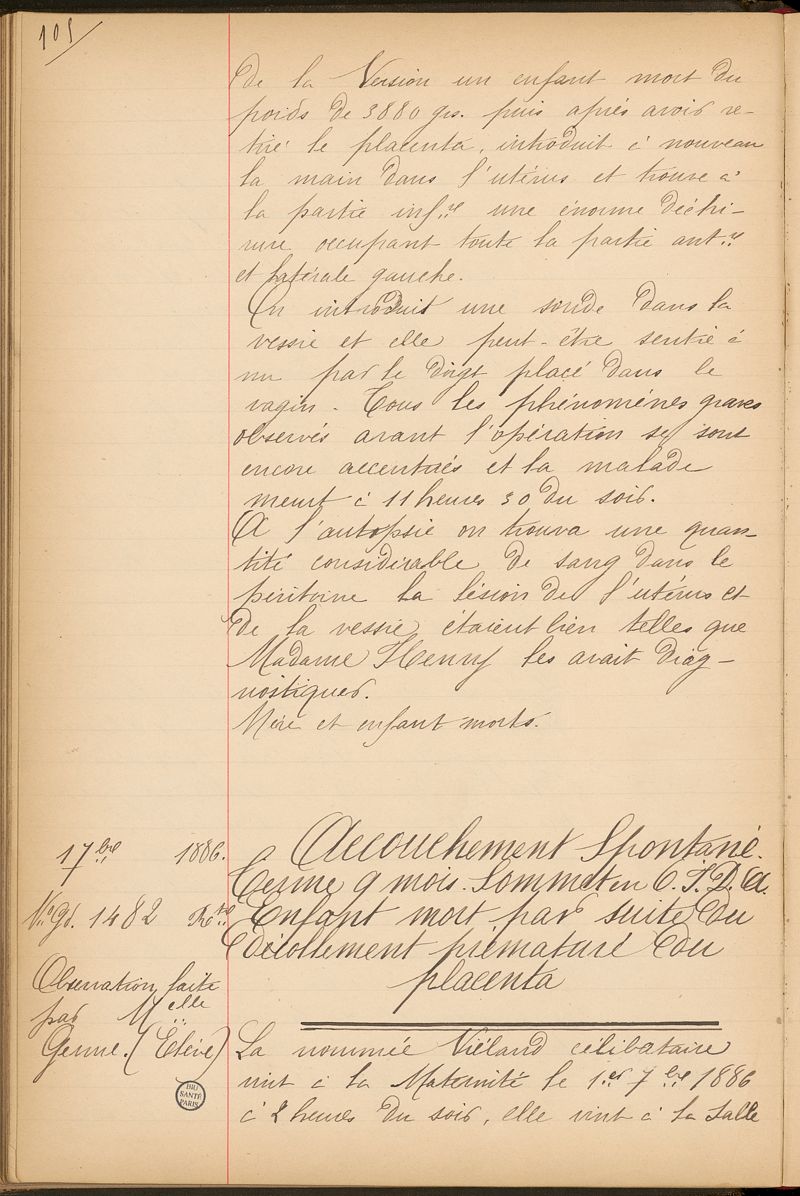 105
De la Version un enfant mort du
poids de 3880 grs. puis après avoir re-
tiré le placenta, introduit à nouveau
la main dans l'utérus et trouve à
la partie infre une énorme déchi-
rure occupant toute la partie antre
et latérale gauche.
On introduit une sonde dans la
vessie et elle peut-être sentie à
nu par le doigt placé dans le
vagin. Tous les phénomènes graves
observés avant l'opération se sont
encore accentués et la malade
meurt à 11 heures 30 du soir.
A l'autopsie on trouva une quan-
tité considérable de sang dans le
péritoine la lésion de l'utérus et
de la vessie étaient bien telles que
Madame Henry les avait diag-
nostiquer.
Mère et enfant morts.
17bre 1886.
No Gd. 1482
Observation faite
par Melle
(Elève)
BIU
SANTÉ
PARIS
Accouchement Spontané.
Terme 9 mois. Sommet en O.I.D.A.
Enfant mort par suite du
Décollement prématuré du
placenta
La nommée Viéland célibataire
vint à la Maternité le 1er 7bre 1886
à 2 heures du soir, elle vint à la salle